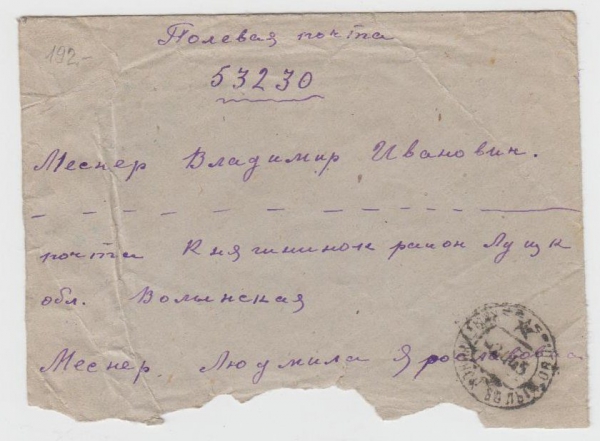 192.-
Полевая почта
53230
Меснер Владимир Иванович.
почта Княгининок район Луцк
обл. Волынская
Меснер. Людмила Ярославовна